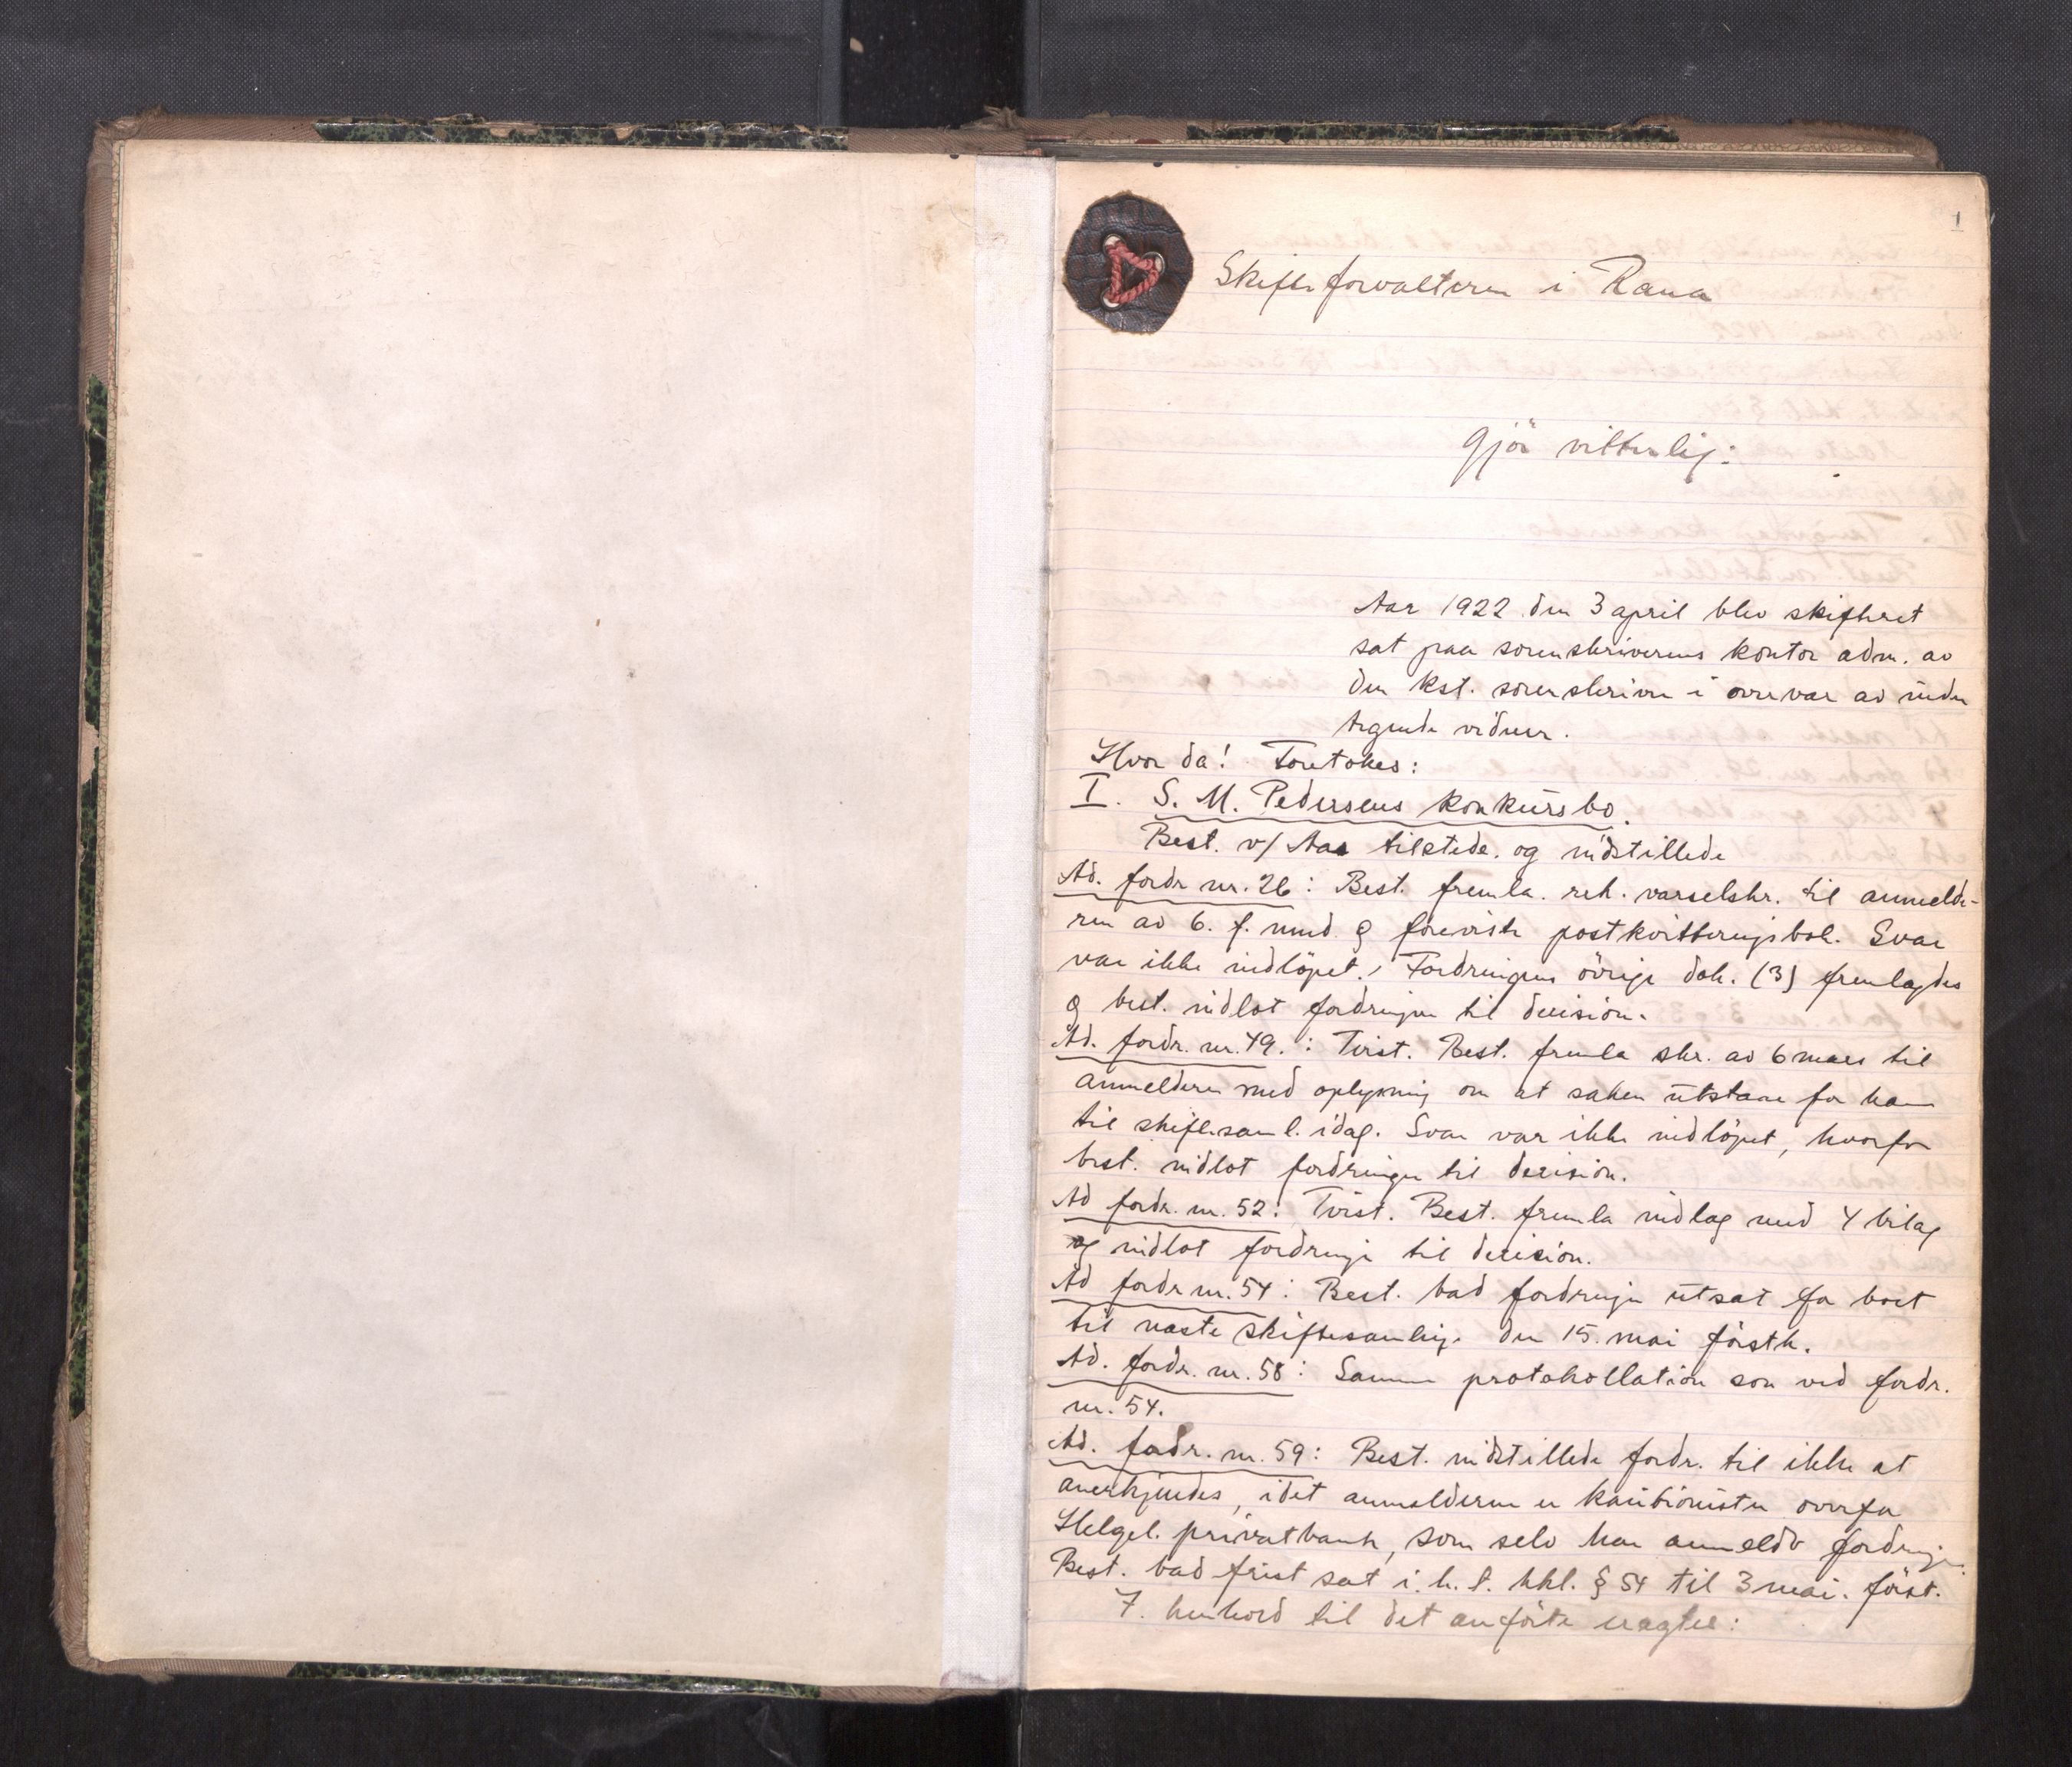 1
Skifteforvalteren i Rana
Gjör vitterlig:
Aar 1922 den 3 april blev skifteret
sat paa sorenskriverens kontor adm. av
den kst. sorenskriver i overvær av under
tegnede vidner.
Hvor da! Foretokes:
I. S. M. Pedersens konkursbo.
Best. v/ Aas tilstede. og indstillede
Ad. fordr nr. 26: Best. fremla. rek. varselskr. til anmelde-
ren av 6. f. mnd. g foreviste postkvitteringsbok. Svar
var ikke indlöpet. Fordringens övrige dok. (3) fremlagdes
g best. indlot fordringen til decision.
Ad. fordr. nr. 49.: Tvist. Best. fremla skr. av 6 mars til
anmelderen med oplysning om at saken utstaar for ham
til skiftesaml. idag. Svar var ikke indlöpet, hvorfor
best. indlot fordringen til decision.
Ad fordr. nr. 52: Tvist. Best. fremla indlag med 4 bilag
og indlot fordringen til decision.
Ad fordr nr. 54: Best. bad fordringen utsat for boet
til næste skiftesamling den 15. mai förstk.
Ad. fordr. nr. 58: Samme protokollation som ved fordr.
nr. 54.
Ad. fordr. nr. 59: Best. indstillede fordr. til ikke at
anerkjendes, idet anmelderen er kautionist overfor
Helgel. privatbank, som selv har anmeldt fordringen.
Best. bad frist sat i. h. t. kkl. § 54 til 3 mai. först.
I. henhold til det anförte eragtes: